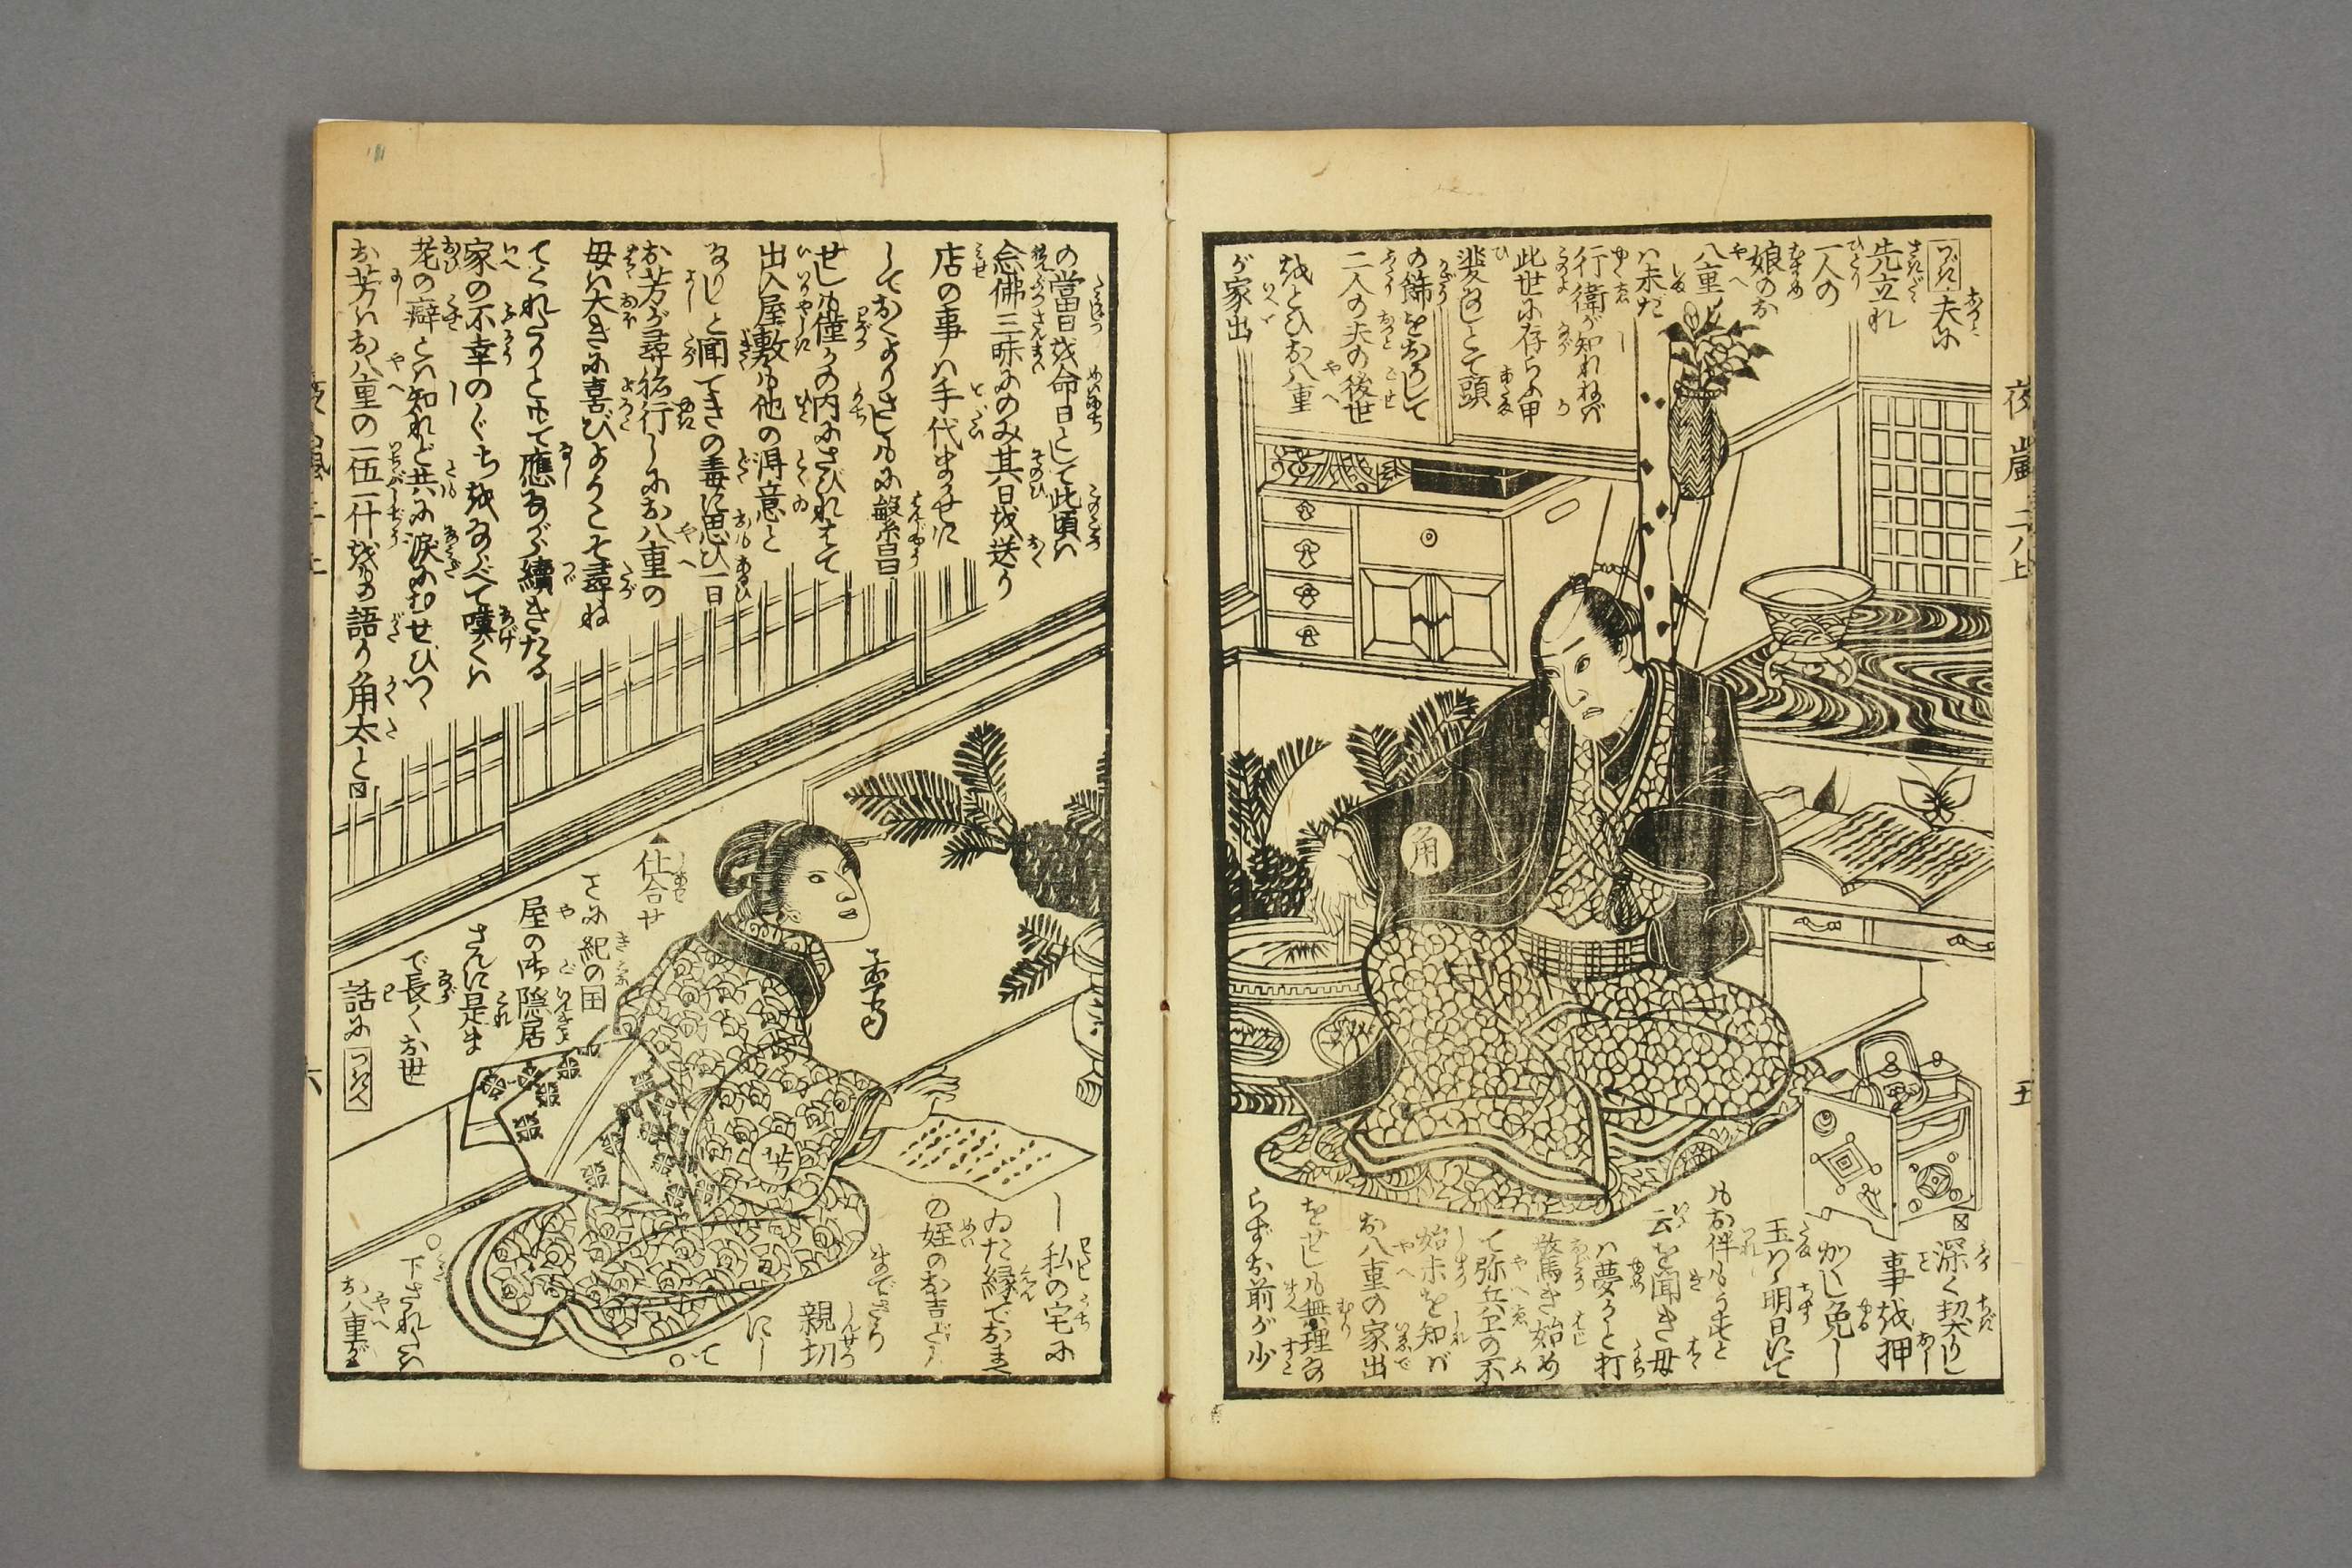 つゞき 夫に
先立れ
一人の
娘のお
八重
ハ未だ
行衛が知れねバ
此世に存らふ甲
斐なしとて頭
の飾をおろして
二人の夫の後世
をとひお八重
が家出
の當日を命日として此頃ハ
念佛三昧にのみ其日を送り
店の事ハ手代まかせに
しておくよりさしもに繁昌
せしも僅かの内にさびれはて
出入屋敷も他の得意と
なりしと聞てきの毒に思ひ一日
お芳が尋ね行しにお八重の
母ハ大きに喜びようこそ尋ね
てくれたりとて應なが〳〵續きたる
家の不幸のぐちをならべて嘆くハ
老の癖とハ知れど共に涙にむせびつゝ
お芳ハお八重の一伍一什を語り角太と
深く契りし
事を押
かくし免し
玉ハゞ明日にて
もお伴もうさんと
云を聞き母
ハ夢かと打
驚き始め
て弥兵衛の不
始末を知バ
お八重の家出
をせしも無理な
らずお前が少
し私の宅に
ゐた縁でおまへ
の姪のお吉どん
までさり
親切
にし
て○
○下されたハ
お八重が
▲仕合せ
さに紀の国
屋の御隠居
さんに是ま
で長くお世
話に つゞく
孟斎画
角
芳
夜嵐 二ノ上
五
夜嵐 二ノ上
六